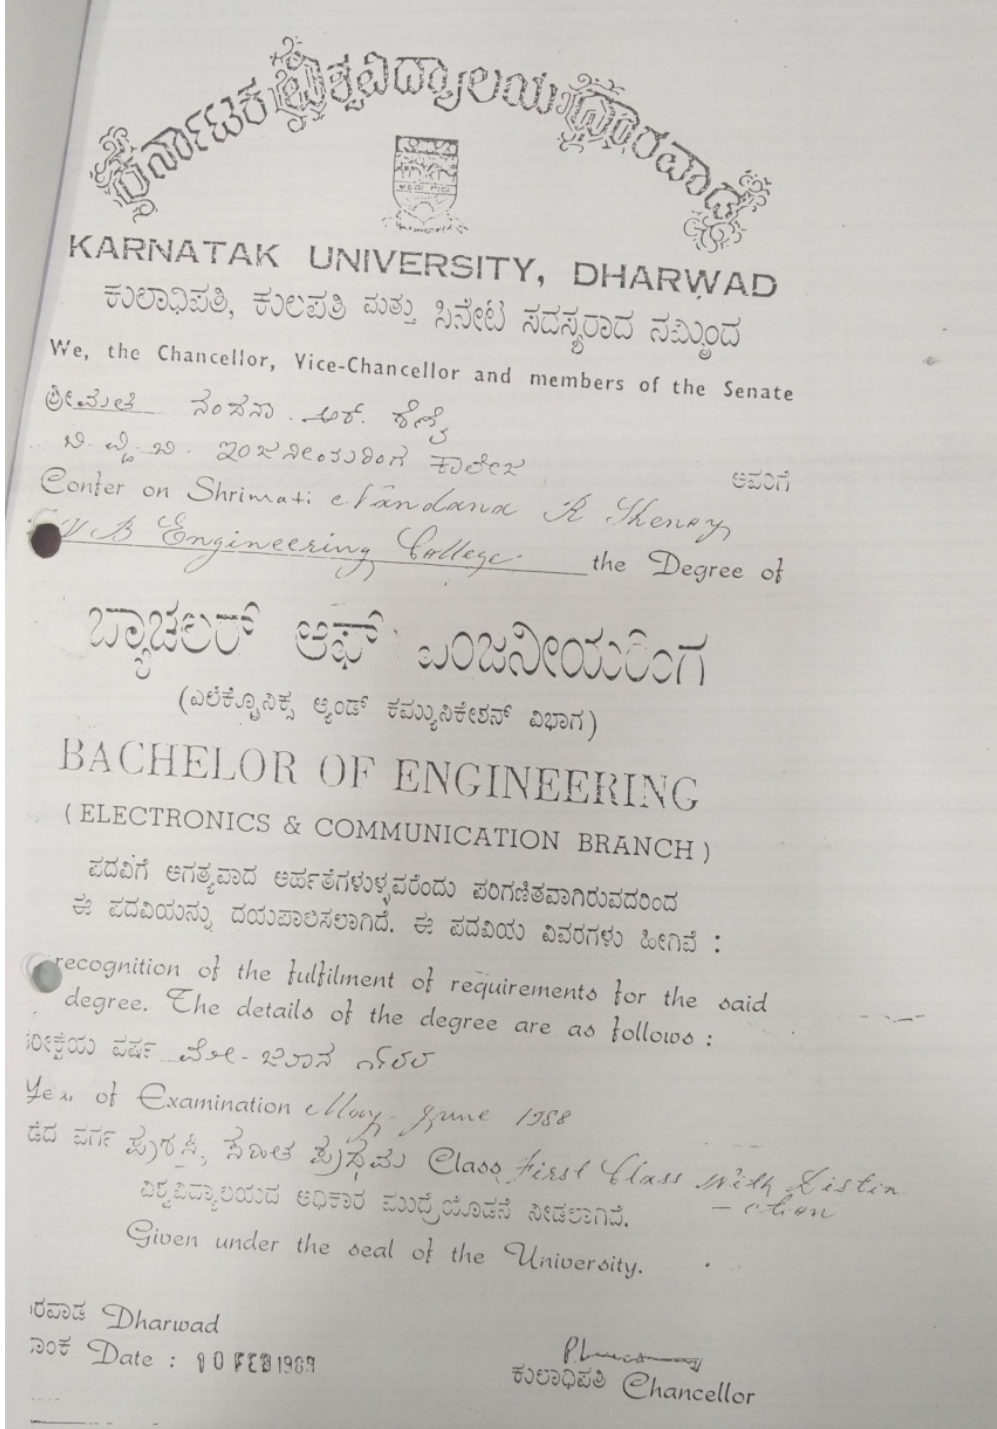 ಕರ್ನಾಟಕ ವಿಶ್ವವಿದ್ಯಾಲಯ ಧಾರವಾಡ
KARNATAK UNIVERSITY, DHARWAD
ಕುಲಾಧಿಪತಿ, ಕುಲಪತಿ ಮತ್ತು ಸಿನೇಟ ಸದಸ್ಯರಾದ ನಮ್ಮಿಂದ
We, the Chancellor, Vice-Chancellor and members of the Senate
ಶ್ರೀಮತಿ ನಂದನಾ. ಆರ್. ಶೆಣೈ
ಬಿ. ವ್ಹಿ. ಬಿ. ಇಂಜನೀಯರಿಂಗ ಕಾಲೇಜ ಅವರಿಗೆ
Confer on Shrimati Nandana R Shenoy
V B Engineering College the Degree of
ಬ್ಯಾಚಲರ್ ಆಫ್ ಎಂಜನೀಯರಿಂಗ
(ಎಲೆಕ್ಟ್ರೊನಿಕ್ಸ ಆ್ಯಂಡ್ ಕಮ್ಯುನಿಕೇಶನ್ ವಿಭಾಗ)
BACHELOR OF ENGINEERING
(ELECTRONICS & COMMUNICATION BRANCH)
ಪದವಿಗೆ ಅಗತ್ಯವಾದ ಅರ್ಹತೆಗಳುಳ್ಳವರೆಂದು ಪರಿಗಣಿತವಾಗಿರುವದರಿಂದ
ಈ ಪದವಿಯನ್ನು ದಯಪಾಲಿಸಲಾಗಿದೆ. ಈ ಪದವಿಯ ವಿವರಗಳು ಹೀಗಿವೆ :
recognition of the fulfilment of requirements for the said
degree. The details of the degree are as follows :
ರೀಕ್ಷೆಯ ವರ್ಷ ಮೇ-ಜೂನ ೧೯೮೮
Year of Examination May-June 1988
ಡೆದ ವರ್ಗ ಪ್ರಶಸ್ತಿ ಸಹಿತ ಪ್ರಥಮ Class First Class With Distin
-ction
ವಿಶ್ವವಿದ್ಯಾಲಯದ ಅಧಿಕಾರ ಮುದ್ರೆಯೊಡನೆ ನೀಡಲಾಗಿದೆ.
Given under the seal of the University.
ರವಾಡ Dharwad
ನಾಂಕ Date : 10 FEB 1989
ಕುಲಾಧಿಪತಿ Chancellor